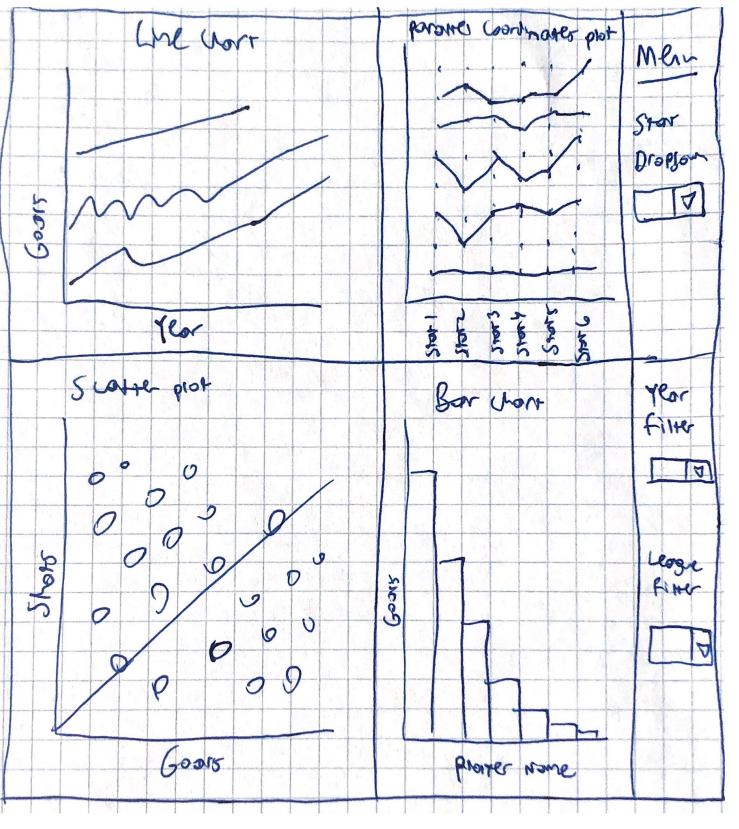 Line chart
Goals
Year
Parallel Coordinates plot
Stat 1
Stat 2
Stat 3
Stat 4
Stat 5
Stat 6
Menu
Stat
Dropdown
Scatter plot
Shots
Goals
Bar chart
Goals
Player Name
Year
Filter
League
Filter